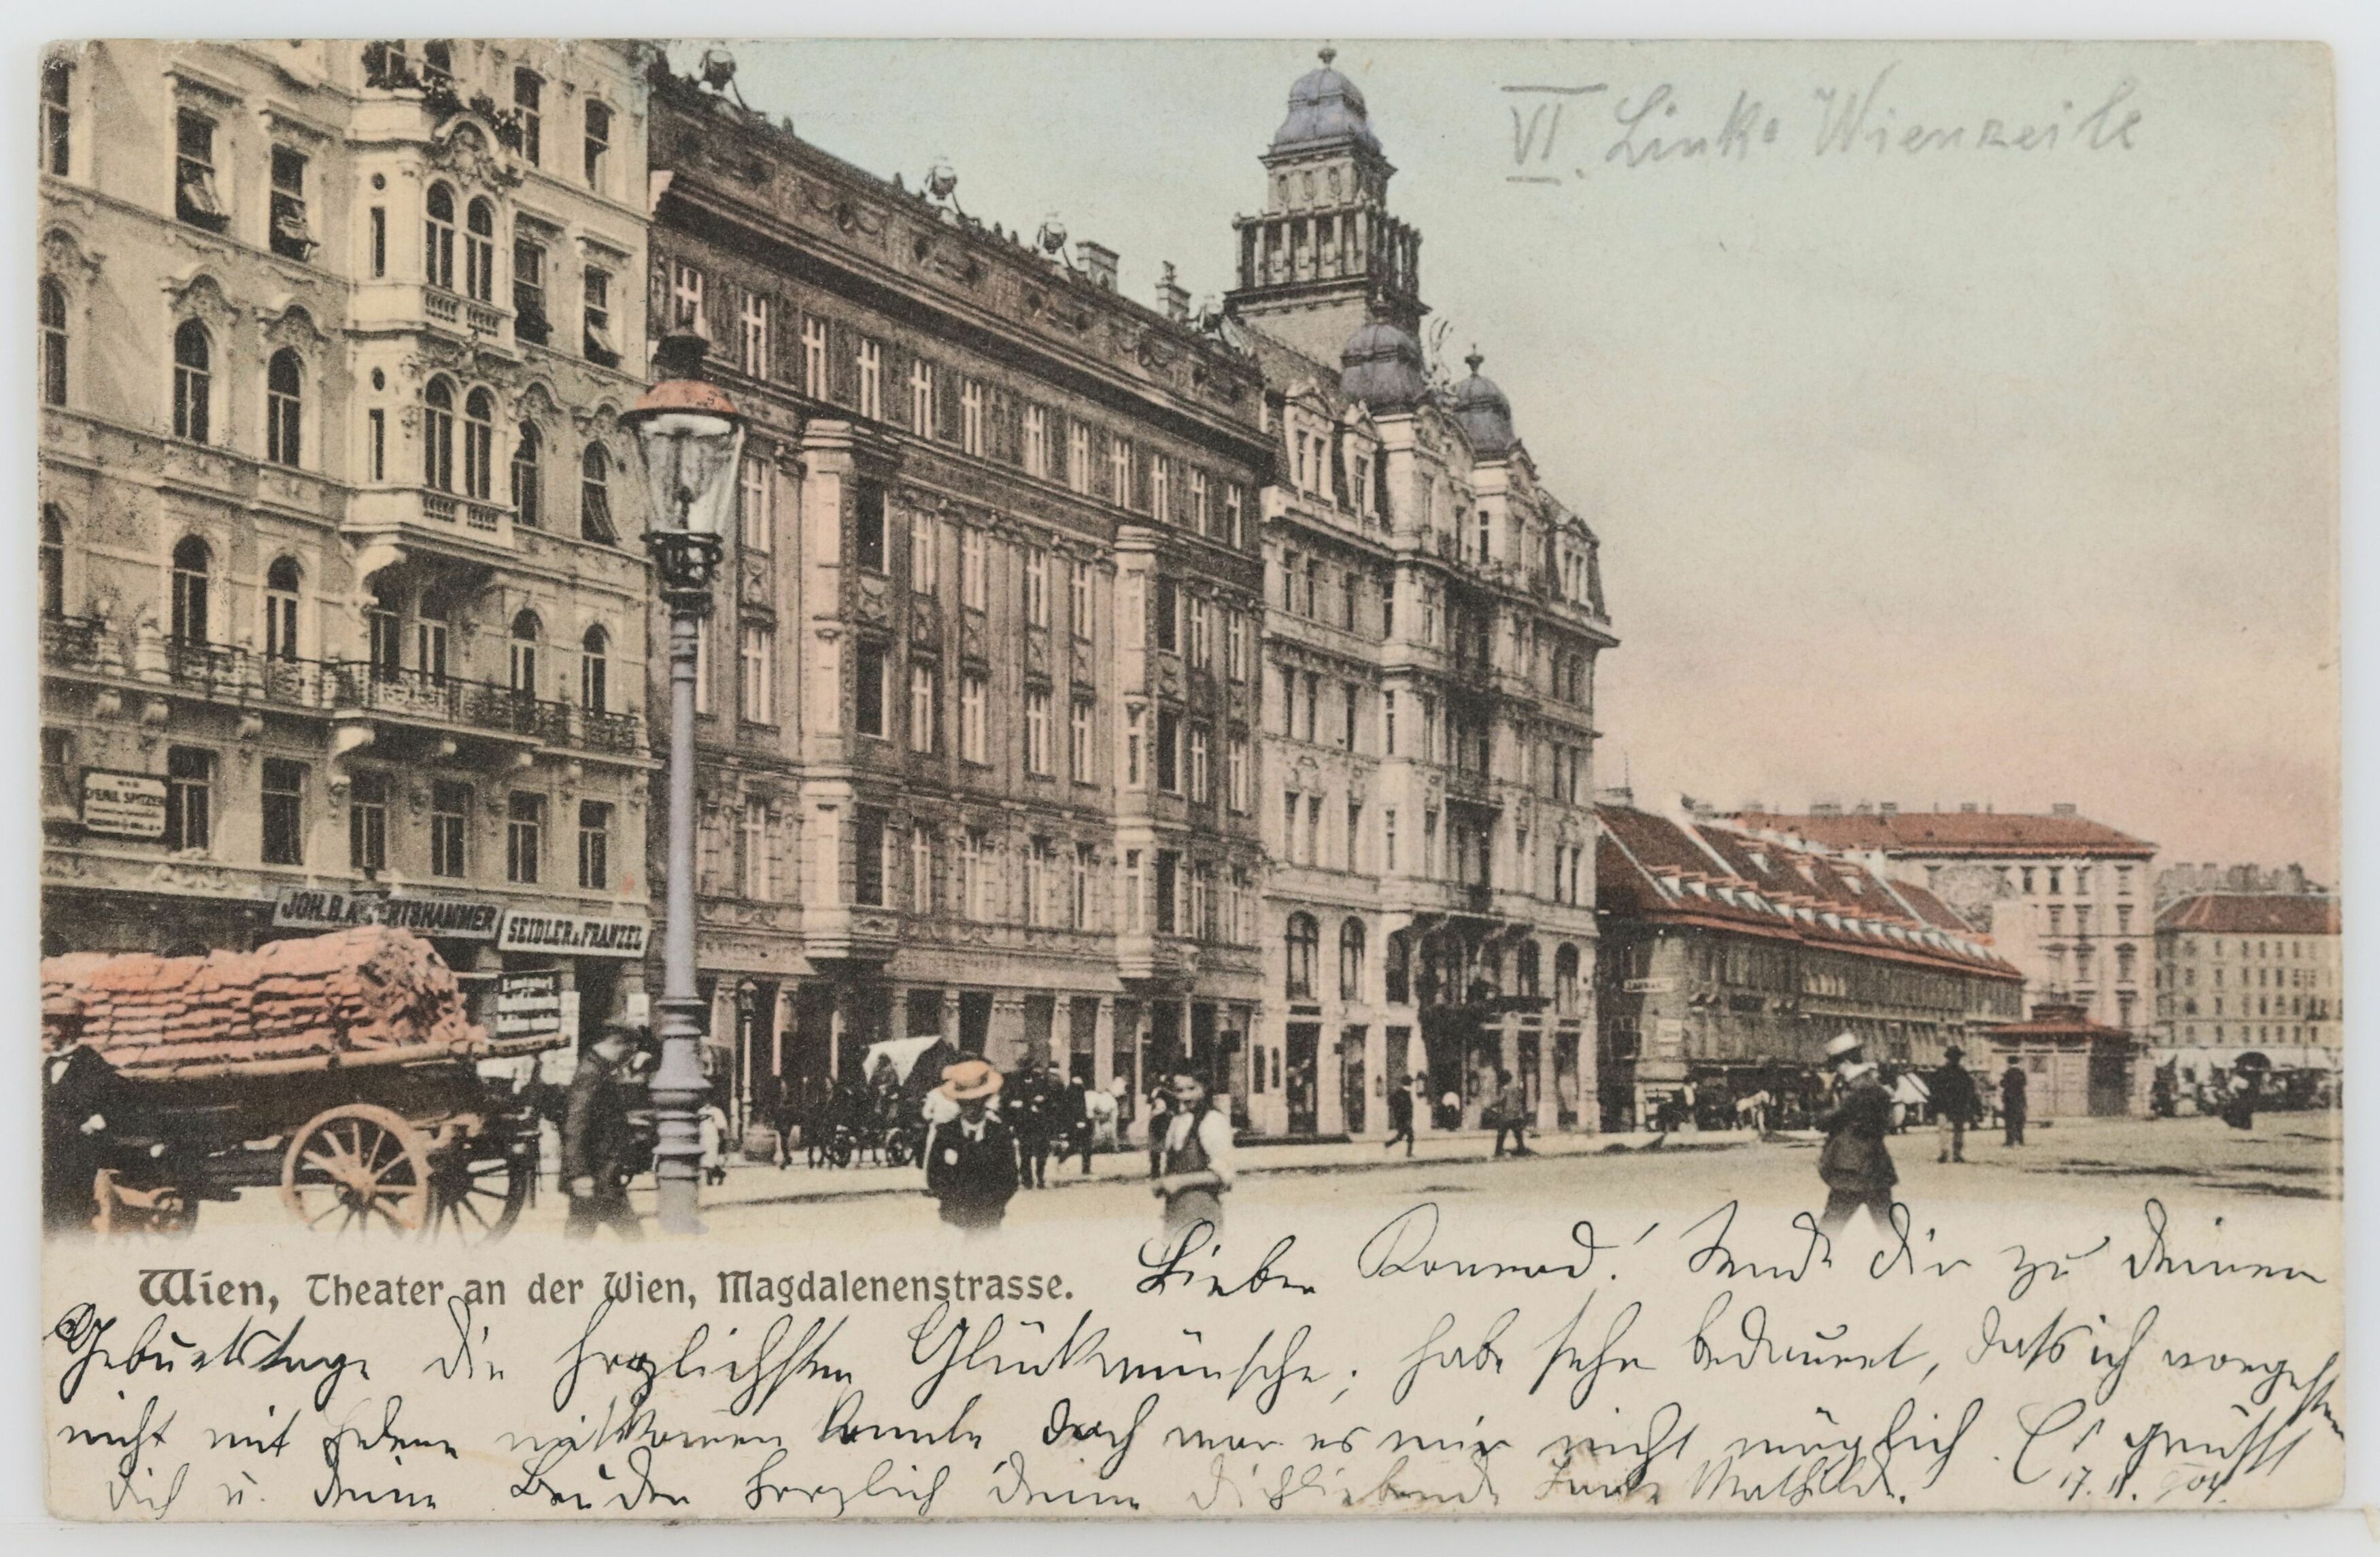 VI. Linke Wienzeile
Dr EMIL SPITZER
JOH. B.
SEIDLER & FRANZEL
Wien, Theater an der Wien, Magdalenenstrasse.
Lieber Konrad! Sende dir zu deinem
Geburtstage die herzlichsten Glückwünsche; habe sehr bedauert, dass ich vorgestern
nicht mit mitkommen konnte doch war es mir nicht möglich. Es grüsst
dich u. deine Brüder herzlich deine dichliebende Tante Mathilde. 17. 11. 904.